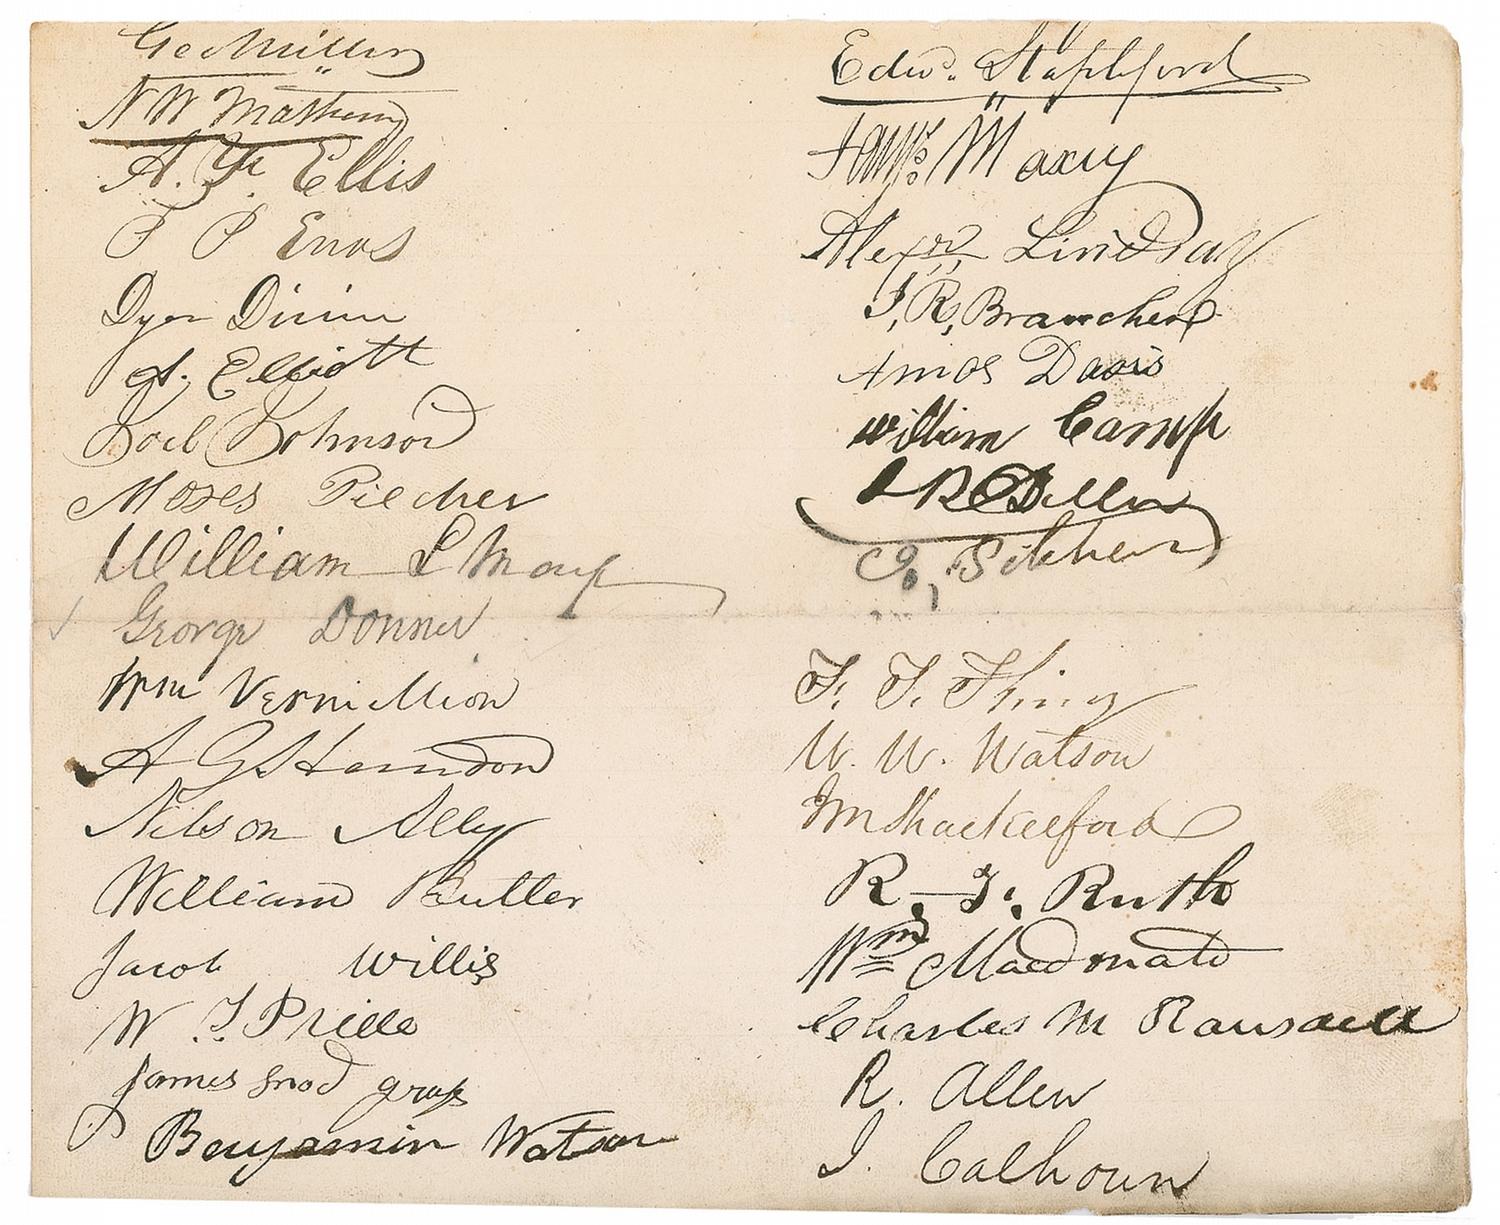 Geo Miller
N W Matheny
A. Yk Ellis
P P Enos
Dyer
A. Elliott
Joel Johnson
Moses Pilcher
William L May
George Donner
Wm Vernillion
A G Herndon
Nelson Alley
William Butler
Jacob Willis
W T
James Snod grass
Benjamin Watson
Edwd. Stapleford
Maxcy
Alexr Lindsay
J, R,
Amos Davis
William Camp
R Diller
C,
T. J. Thing
W. W. Watson
Wm Shackelford
R. F. Ruth
Wm Macdonald
Charles M Ransdell
R. Allen
J. Calhoun